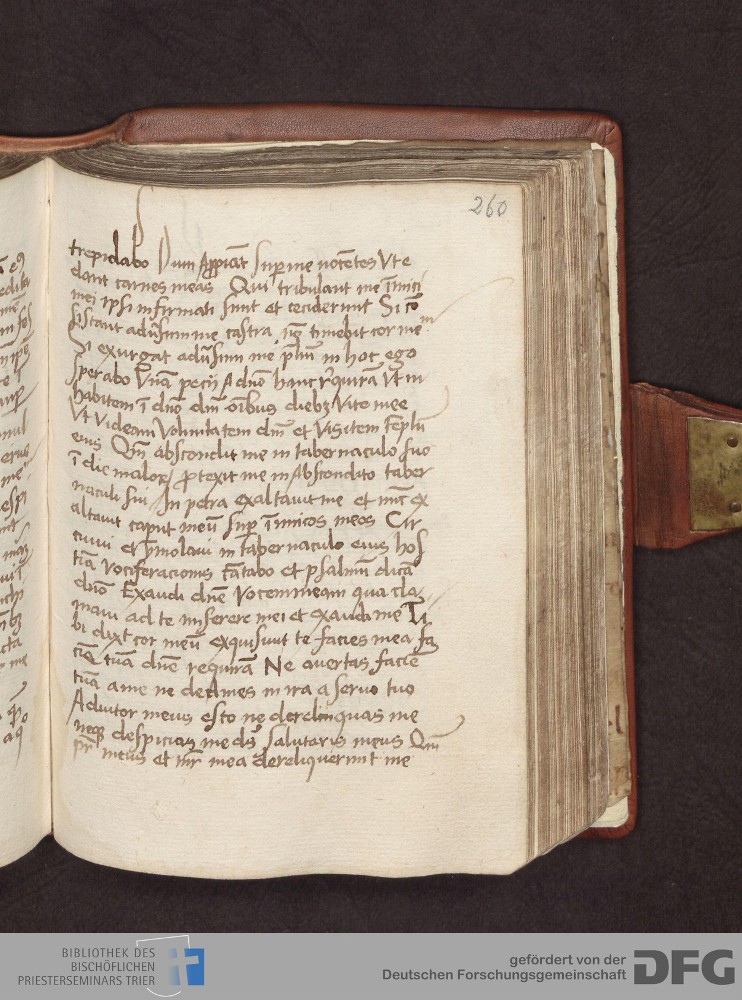 260
trepidabo Dum Appiāt Sup me nocētes Vt e
dant carnes meas Qui tribulant me īimici
mei ipsi infirmati sunt et ceciderunt Si cō
sistant adūsum me castra nō timebit cor meū
Si exurgat adūsum me p̄liū in hoc ego
sperabo Vnā pecij A dn̄o hanc rquirā Vt in
habitem ī dn̄o dn̄i oībus diebꝫ Vite mee
Vt Videam Voluntatem dn̄i et Visitem tēplū
eius Qm̄ abscondit me in tabernaculo suo
ī die malorꝫ protexit me in Abscondito taber
naculi sui In petra exaltauit me et nūc ex
altauit caput meū sup īimicos meos Cir
cuiui et ymolaui in tabernaculo eius hos
tiā Vociferacionis cātabo et psalmū dicā
dn̄o Exaudi dn̄e Vocem meam qua cla
maui ad te miserere mei et exaudi me Ti
bi dixt cor meū exquisiuit te facies mea fa
ciē tuā dn̄e requirā Ne auertas faciē
tuā a me ne declines in ira a seruo tuo
Adiutor meus esto ne derelinquas me
neqꝫ despicias me ds̄ salutaris meus Qm̄
pr̄ meus et mr̄ mea dereliquerunt me
BIBLIOTHEK DES
BISCHÖFLICHEN
PRIESTERSEMINARS TRIER
gefördert von der
Deutschen Forschungsgemeinschaft
DFG